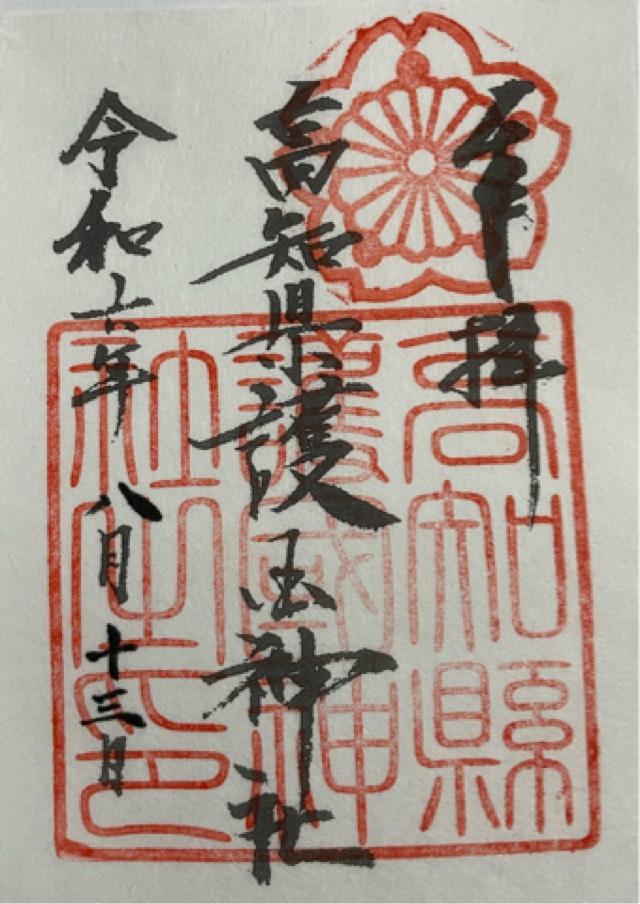 奉拝
高知県護国神社
令和六年八月十三日
高知縣
護國神
社之印